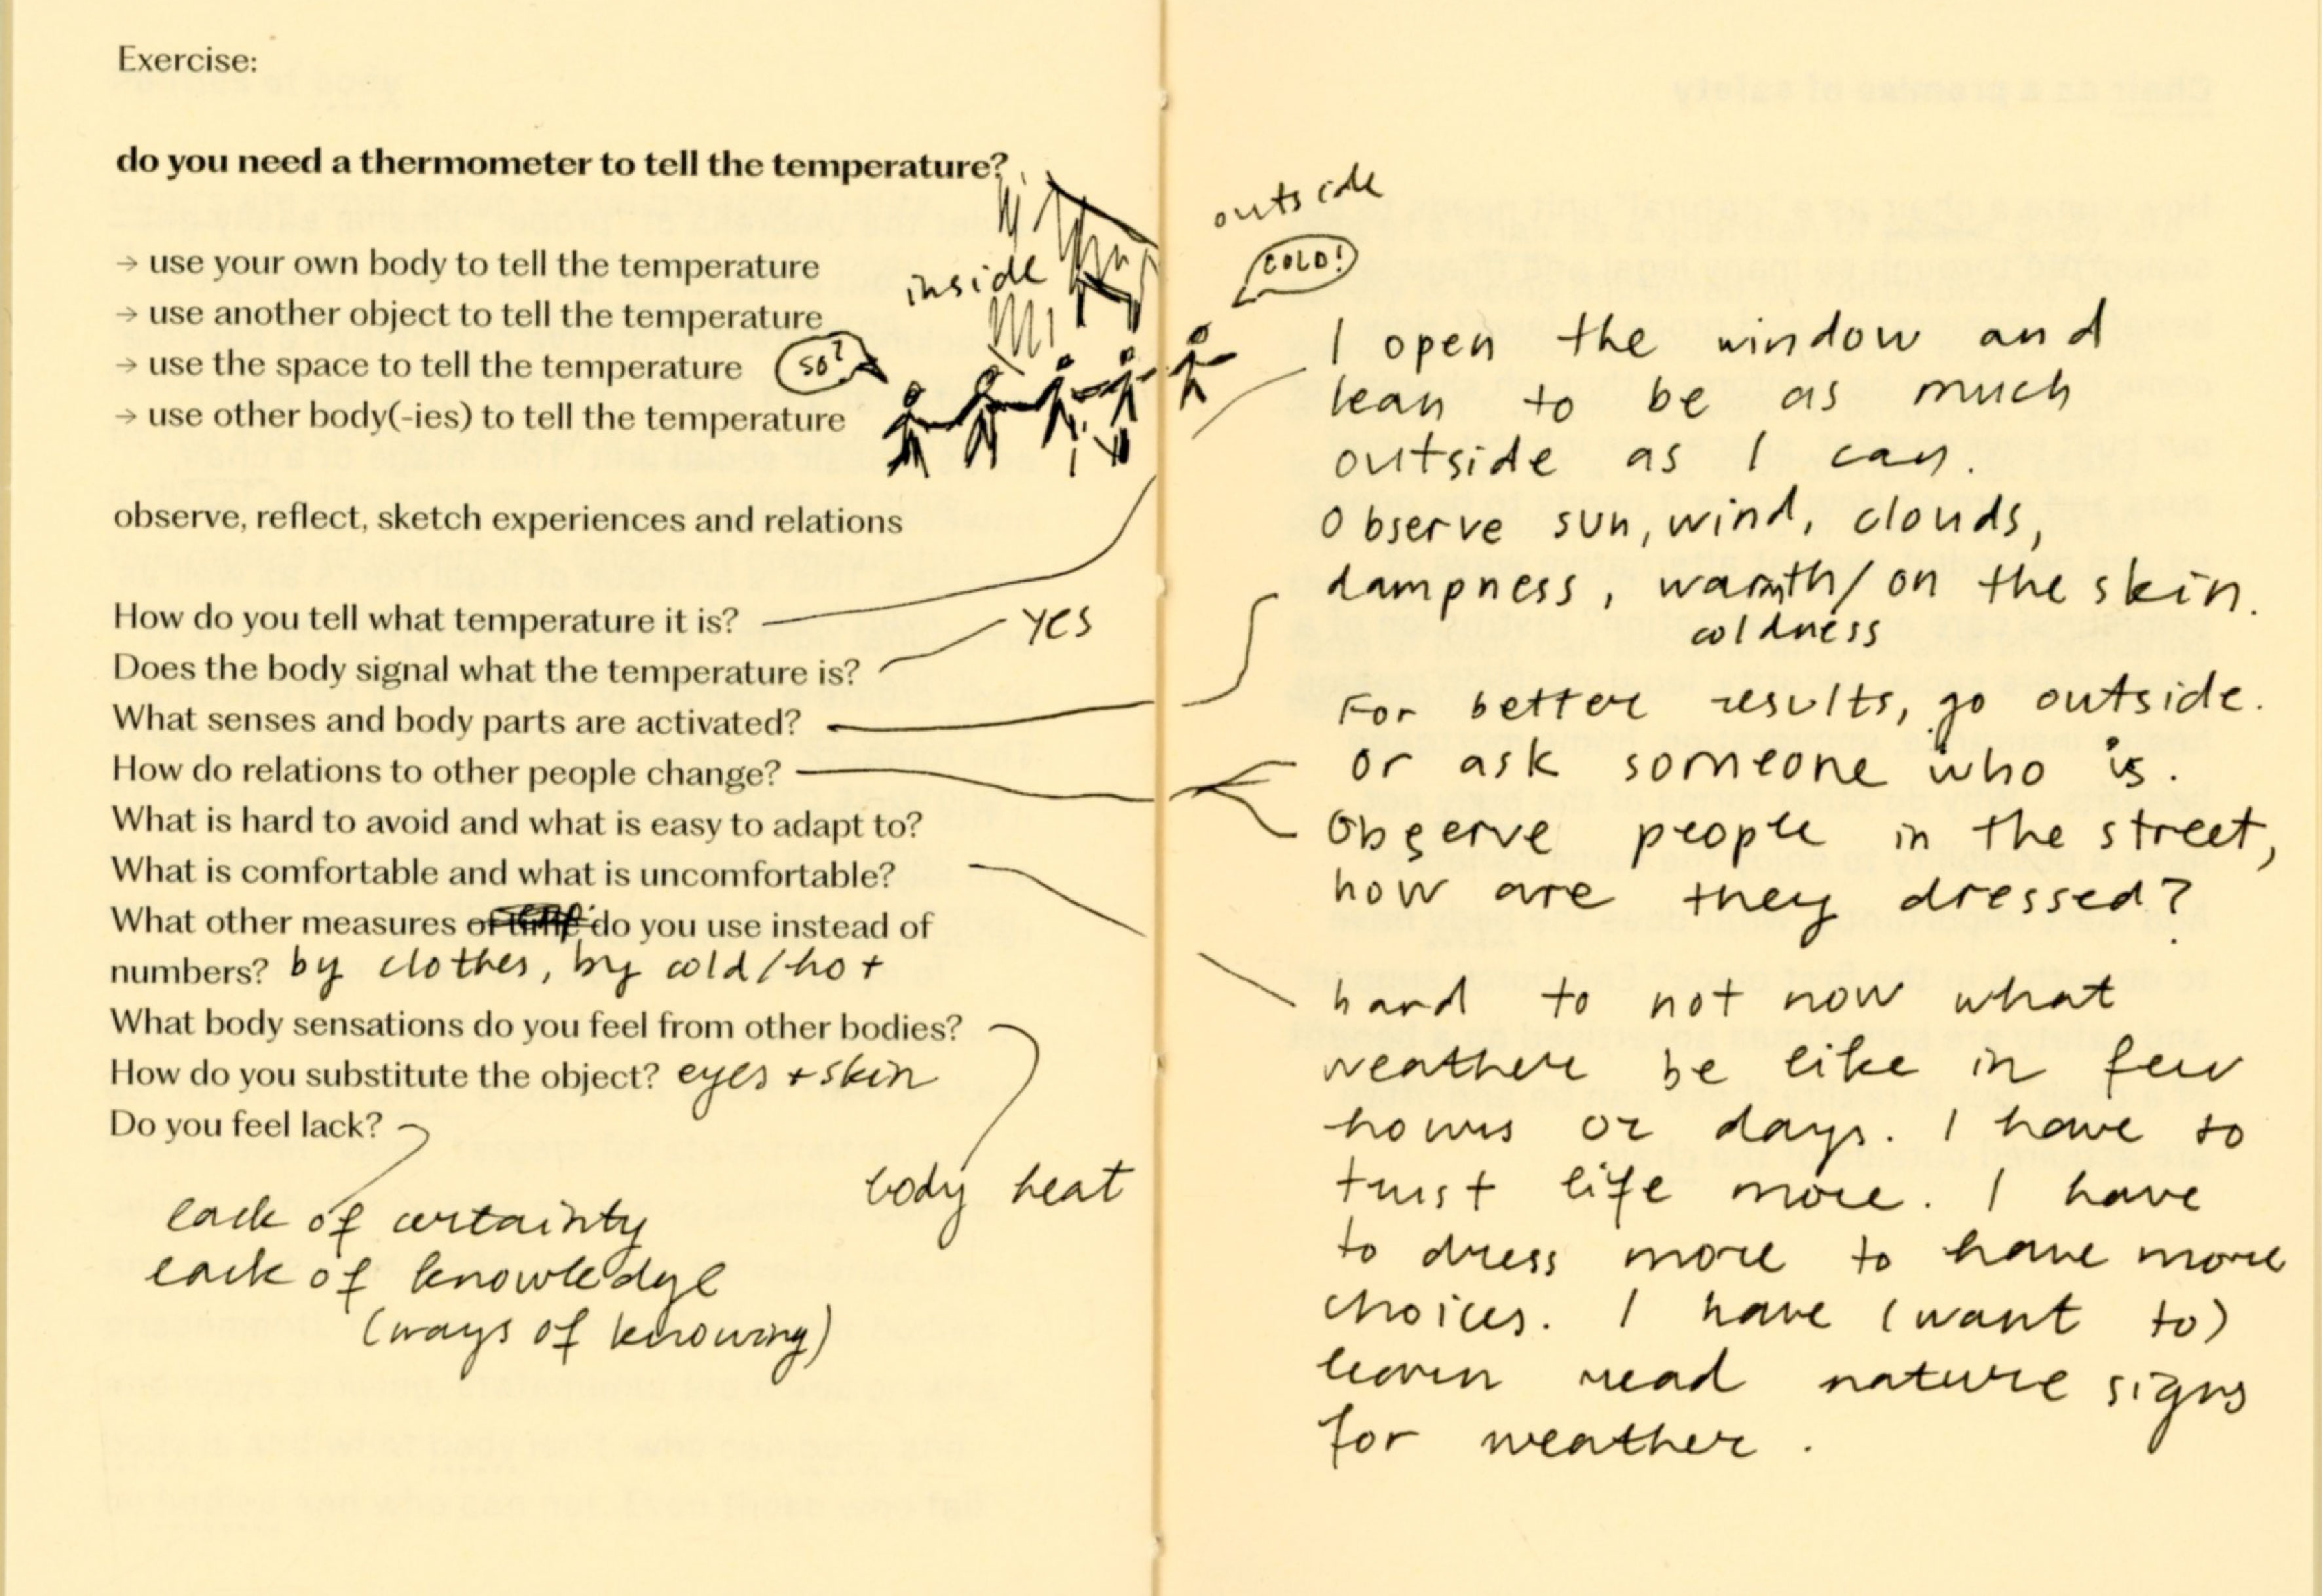 Exercise:
do you need a thermometer to tell the temperature?
→ use your own body to tell the temperature
→ use another object to tell the temperature
→ use the space to tell the temperature
→ use other body(-ies) to tell the temperature
inside
so?
observe, reflect, sketch experiences and relations
How do you tell what temperature it is?
Does the body signal what the temperature is? yes
What senses and body parts are activated?
How do relations to other people change?
What is hard to avoid and what is easy to adapt to?
What is comfortable and what is uncomfortable?
What other measures of time do you use instead of
numbers? by clothes, by cold/hot
What body sensations do you feel from other bodies?
How do you substitute the object? eyes + skin
Do you feel lack?
body heat
lack of certainty
lack of knowledge
(ways of knowing)
outside
COLD!
I open the window and
lean to be as much
outside as I can.
Observe sun, wind, clouds,
dampness, warmth/ on the skin.
coldness
For better results, go outside.
or ask someone who is.
Observe people in the street,
how are they dressed?
hard to not now what
weather be like in few
hours or days. I have to
trust life more. I have
to dress more to have more
choices. I have (want to)
learn read nature signs
for weather.